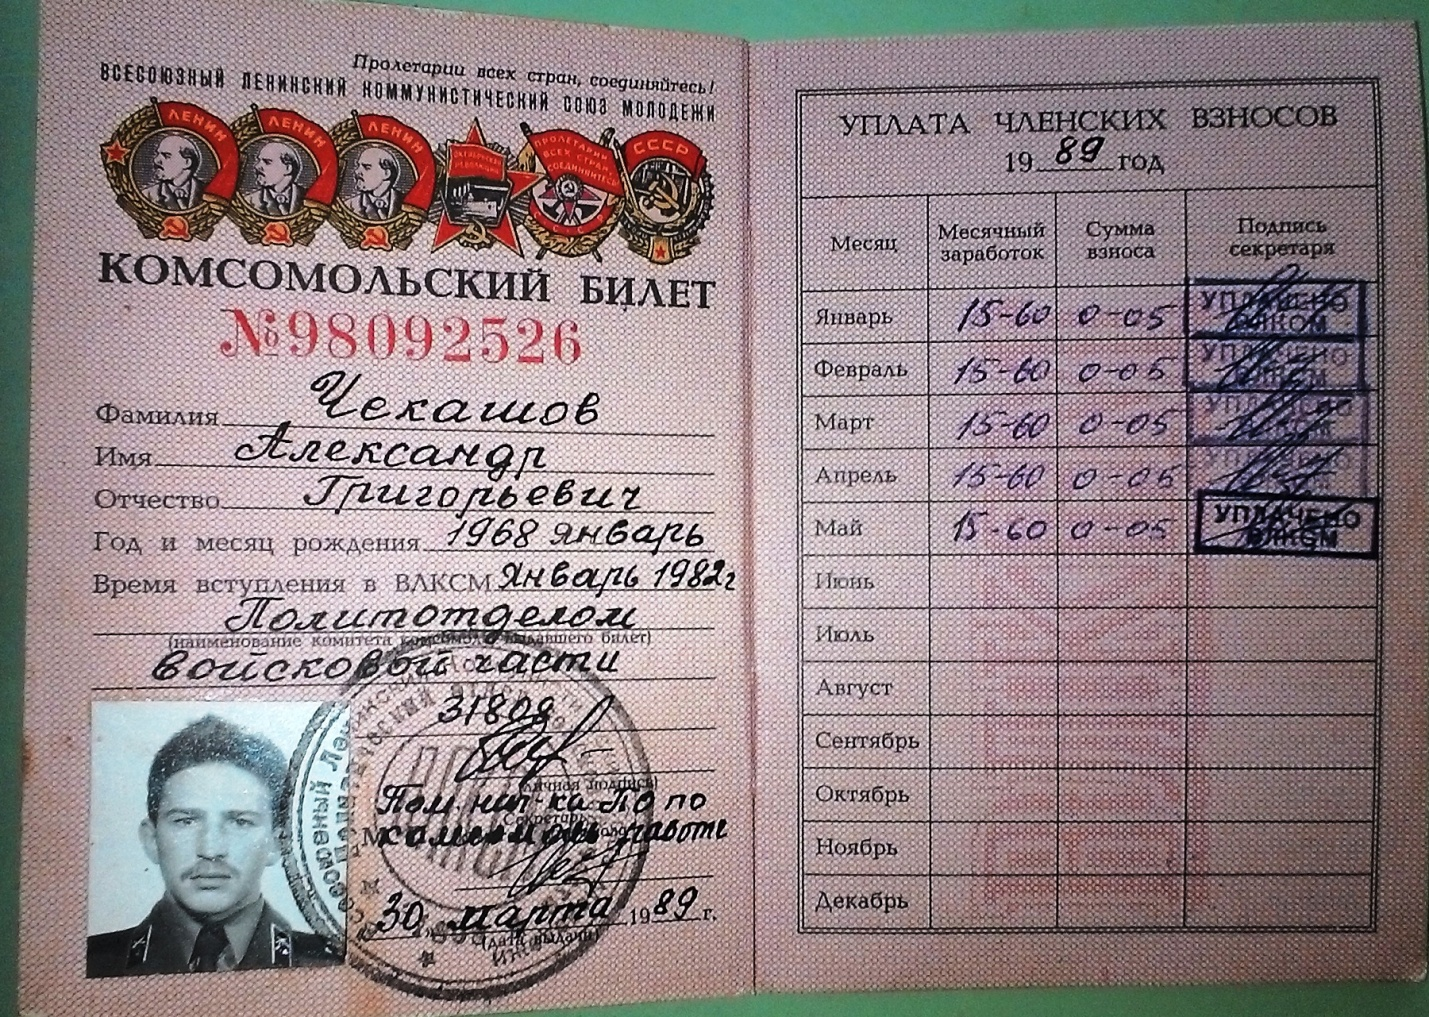 Пролетарии всех стран, соединяйтесь!
ВСЕСОЮЗНЫЙ ЛЕНИНСКИЙ КОММУНИСТИЧЕСКИЙ СОЮЗ МОЛОДЕЖИ
ЛЕНИН ЛЕНИН ЛЕНИН ОКТЯБРЬСКАЯ РЕВОЛЮЦИЯ ПРОЛЕТАРИИ ВСЕХ СТРАН, СОЕДИНЯЙТЕСЬ СССР
КОМСОМОЛЬСКИЙ БИЛЕТ
№98092526
Фамилия Чекашов
Имя Александр
Отчество Григорьевич
Год и месяц рождения 1968 январь
Время вступления в ВЛКСМ Январь 1982г
Политотделом
(наименование комитета комсомола, выдавшего билет)
войсковой части
31809
(личная подпись)
Пом. нач-ка ПО по
комсомольской работе
30 марта 1989 г.
(дата выдачи)
УПЛАТА ЧЛЕНСКИХ ВЗНОСОВ
1989 год
Месяц Месячный заработок Сумма взноса Подпись секретаря
Январь 15-60 0-05 УПЛАЧЕНО ВЛКСМ
Февраль 15-60 0-05 УПЛАЧЕНО ВЛКСМ
Март 15-60 0-05 УПЛАЧЕНО ВЛКСМ
Апрель 15-60 0-05 УПЛАЧЕНО ВЛКСМ
Май 15-60 0-05 УПЛАЧЕНО ВЛКСМ
Июнь
Июль
Август
Сентябрь
Октябрь
Ноябрь
Декабрь